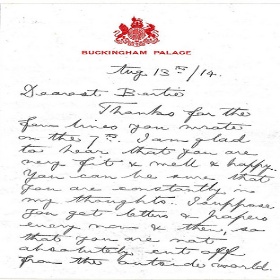 BUCKINGHAM PALACE
Aug 13th/14.
Dearest Bertie
Thanks for the
few lines you wrote
on the 7th. I am glad
to hear that you are
very fit & well & happy.
You can be sure that
you are constantly in
my thoughts. I suppose
you get letters & papers
every now & then, so
that you are not
absolutely cut off
from the outside world